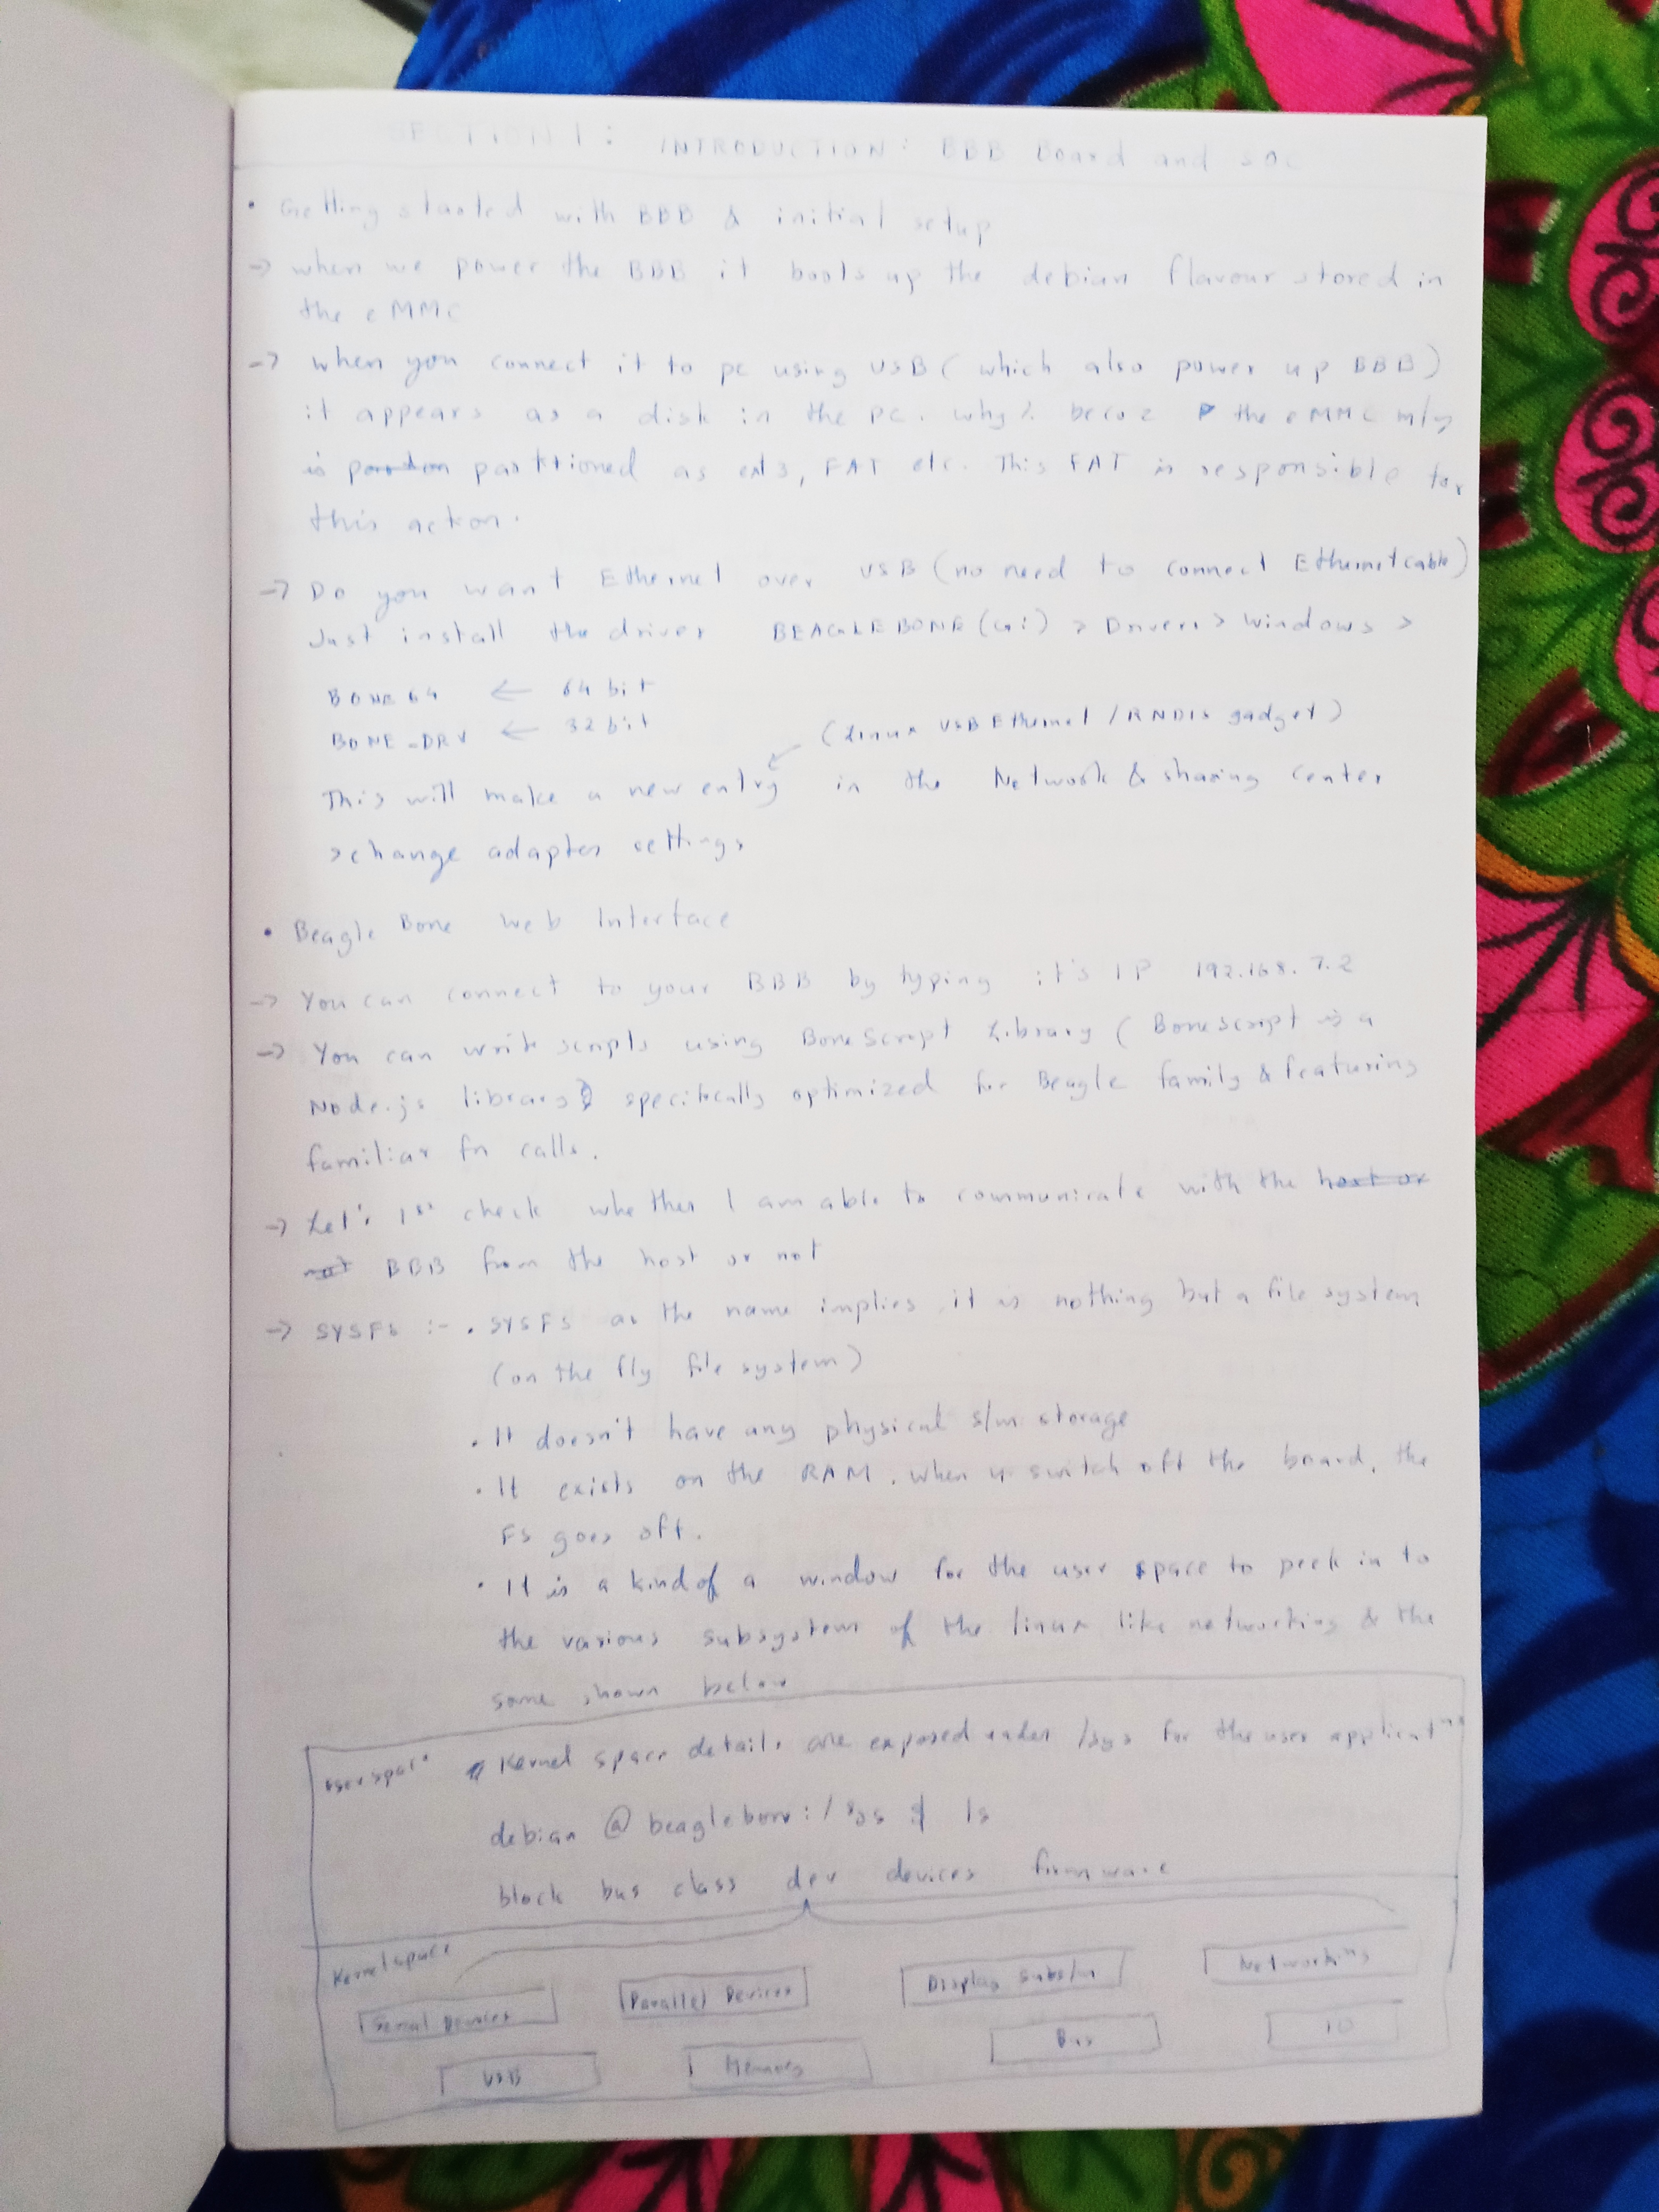 SECTION 1: INTRODUCTION: BBB Board and SOC
• Getting started with BBB & initial setup
-> when we power the BBB it boots up the debian flavour stored in
the eMMC
-> when you connect it to pc using USB (which also power up BBB)
it appears as a disk in the PC. why? becoz the eMMC m/y
is partitioned as ext3, FAT etc. This FAT is responsible for
this action.
-> Do you want Ethernet over USB (no need to connect Ethernet cable)
Just install the driver BEAGLEBONE (G:) > Drivers > Windows >
BONE64 ← 64 bit
BONE_DRV ← 32 bit
(Linux USB Ethernet / RNDIS gadget)
This will make a new entry in the Network & sharing center
> change adapter settings
• Beagle Bone Web Interface
-> You can connect to your BBB by typing it's IP 192.168.7.2
-> You can write scripts using BoneScript Library (Bonescript is a
Node.js library) specifically optimized for Beagle family & featuring
familiar fn calls.
-> Let's 1st check whether I am able to communicate with the host or
not BBB from the host or not
-> SYSFS :- • SYSFS as the name implies it is nothing but a file system
(on the fly file system)
• It doesn't have any physical s/m storage
• It exists on the RAM. when u switch off the board, the
FS goes off.
• It is a kind of a window for the user space to peek in to
the various subsystem of the linux like networking & the
same shown below
userspace Kernel space details are exposed under /sys for the user applicatns
debian @ beaglebone:/sys $ ls
block bus class dev devices firmware
Kernel space
Serial Devices Parallel Devices Display subs/m Networking
USB Memory Bus IO